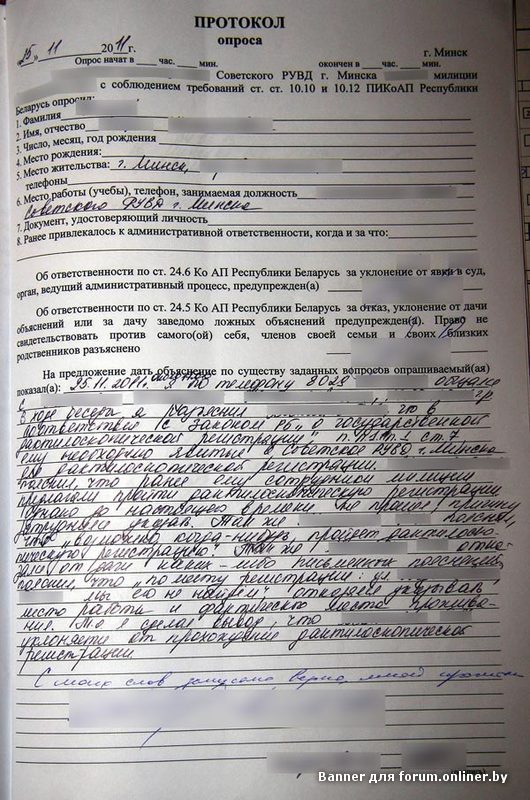 ПРОТОКОЛ
опроса
«25» 11 2011 г. г. Минск
Опрос начат в час. мин. окончен в час. мин.
Советского РУВД г. Минска милиции
с соблюдением требований ст. ст. 10.10 и 10.12 ПИКоАП Республики
Беларусь опросил:
1. Фамилия
2. Имя, отчество
3. Число, месяц, год рождения
4. Место рождения:
5. Место жительства: г. Минск,
телефоны
6. Место работы (учебы), телефон, занимаемая должность
Советского РУВД г. Минска
7. Документ, удостоверяющий личность
8. Ранее привлекалось к административной ответственности, когда и за что:
Об ответственности по ст. 24.6 Ко АП Республики Беларусь за уклонение от явки в суд,
орган, ведущий административный процесс, предупрежден(а)
Об ответственности по ст. 24.5 Ко АП Республики Беларусь за отказ, уклонение от дачи
объяснений или за дачу заведомо ложных объяснений предупрежден(а). Право не
свидетельствовать против самого(ой) себя, членов своей семьи и своих близких
родственников разъяснено
На предложение дать объяснение по существу заданных вопросов опрашиваемый(ая)
показал(а): 25.11.2011г. я по телефону 8029
с гр.
В ходе беседы я разъяснил что в
соответствии с Законом РБ „О государственной
дактилоскопической регистрации" ст. 7
ему необходимо явиться в Советское РУВД г. Минска
для дактилоскопической регистрации.
пояснил, что ранее ему сотрудники милиции
предлагали пройти дактилоскопическую регистрацию
однако до настоящего времени не прошел, причину
затрудняется указать. Так же пояснил,
что „возможно когда-нибудь, пройдет дактилоско-
пическую регистрацию". Так же отка-
зался от дачи каких-либо письменных пояснений,
пояснил, что „по месту регистрации:
вы его не найдете", отказался указывать
место работы и фактическое место прожива-
ния. Мною я сделал вывод, что
уклоняется от прохождения дактилоскопической
регистрации
С моих слов записано верно, мной прочитано
Banner для forum.onliner.by